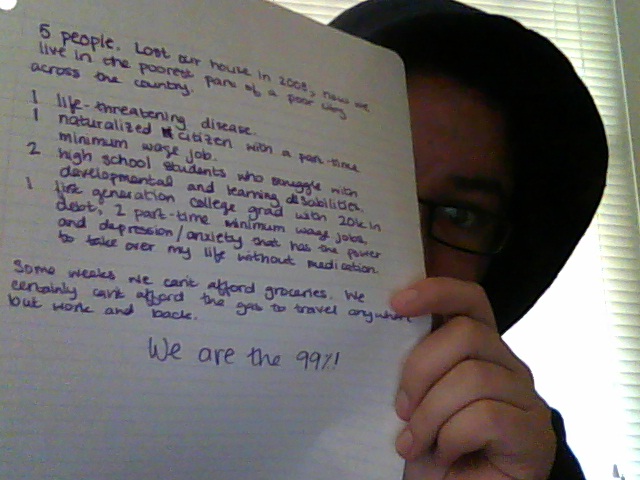 5 people. Lost our house in 2008, now we
live in the poorest part of a poor city
across the country.
1 life-threatening disease.
1 naturalized citizen with a part-time
minimum wage job.
2 high school students who struggle with
developmental and learning disabilities.
1 first generation college grad with 20k in
debt, 2 part-time minimum wage jobs,
and depression/anxiety that has the power
to take over my life without medication.
Some weeks we can't afford groceries. We
certainly can't afford the gas to travel anywhere
but work and back.
We are the 99%!